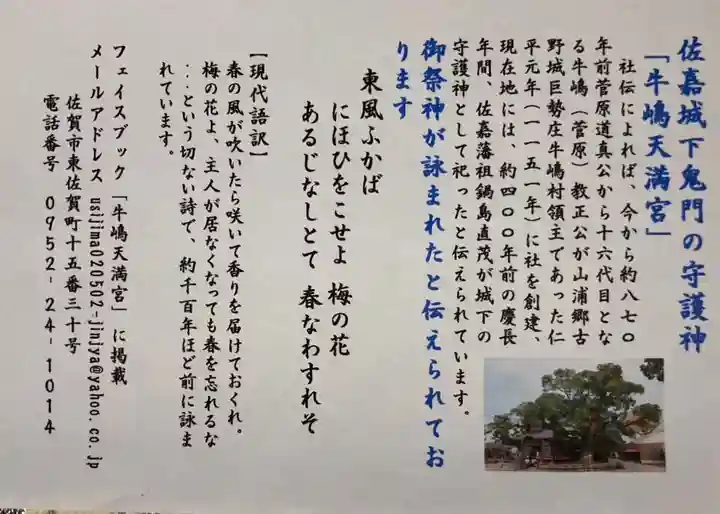 佐嘉城下鬼門の守護神
「牛嶋天満宮」
社伝によれば、今から約八七〇
年前菅原道真公から十六代目とな
る牛嶋（菅原）教正公が山浦郷古
野城巨勢庄牛嶋村領主であった仁
平元年（一一五一年）に社を創建、
現在地には、約四〇〇年前の慶長
年間、佐嘉藩祖鍋島直茂が城下の
守護神として祀ったと伝えられています。
御祭神が詠まれたと伝えられてお
ります
東風ふかば
にほひをこせよ 梅の花
あるじなしとて 春なわすれそ
【現代語訳】
春の風が吹いたら咲いて香りを届けておくれ。
梅の花よ、主人が居なくなっても春を忘れるな
・・・という切ない詩で、約千百年ほど前に詠ま
れています。
フェイスブック「牛嶋天満宮」に掲載
メールアドレス usijima020502-jinjya@yahoo.co.jp
佐賀市東佐賀町十五番三十号
電話番号 0952-24-1014